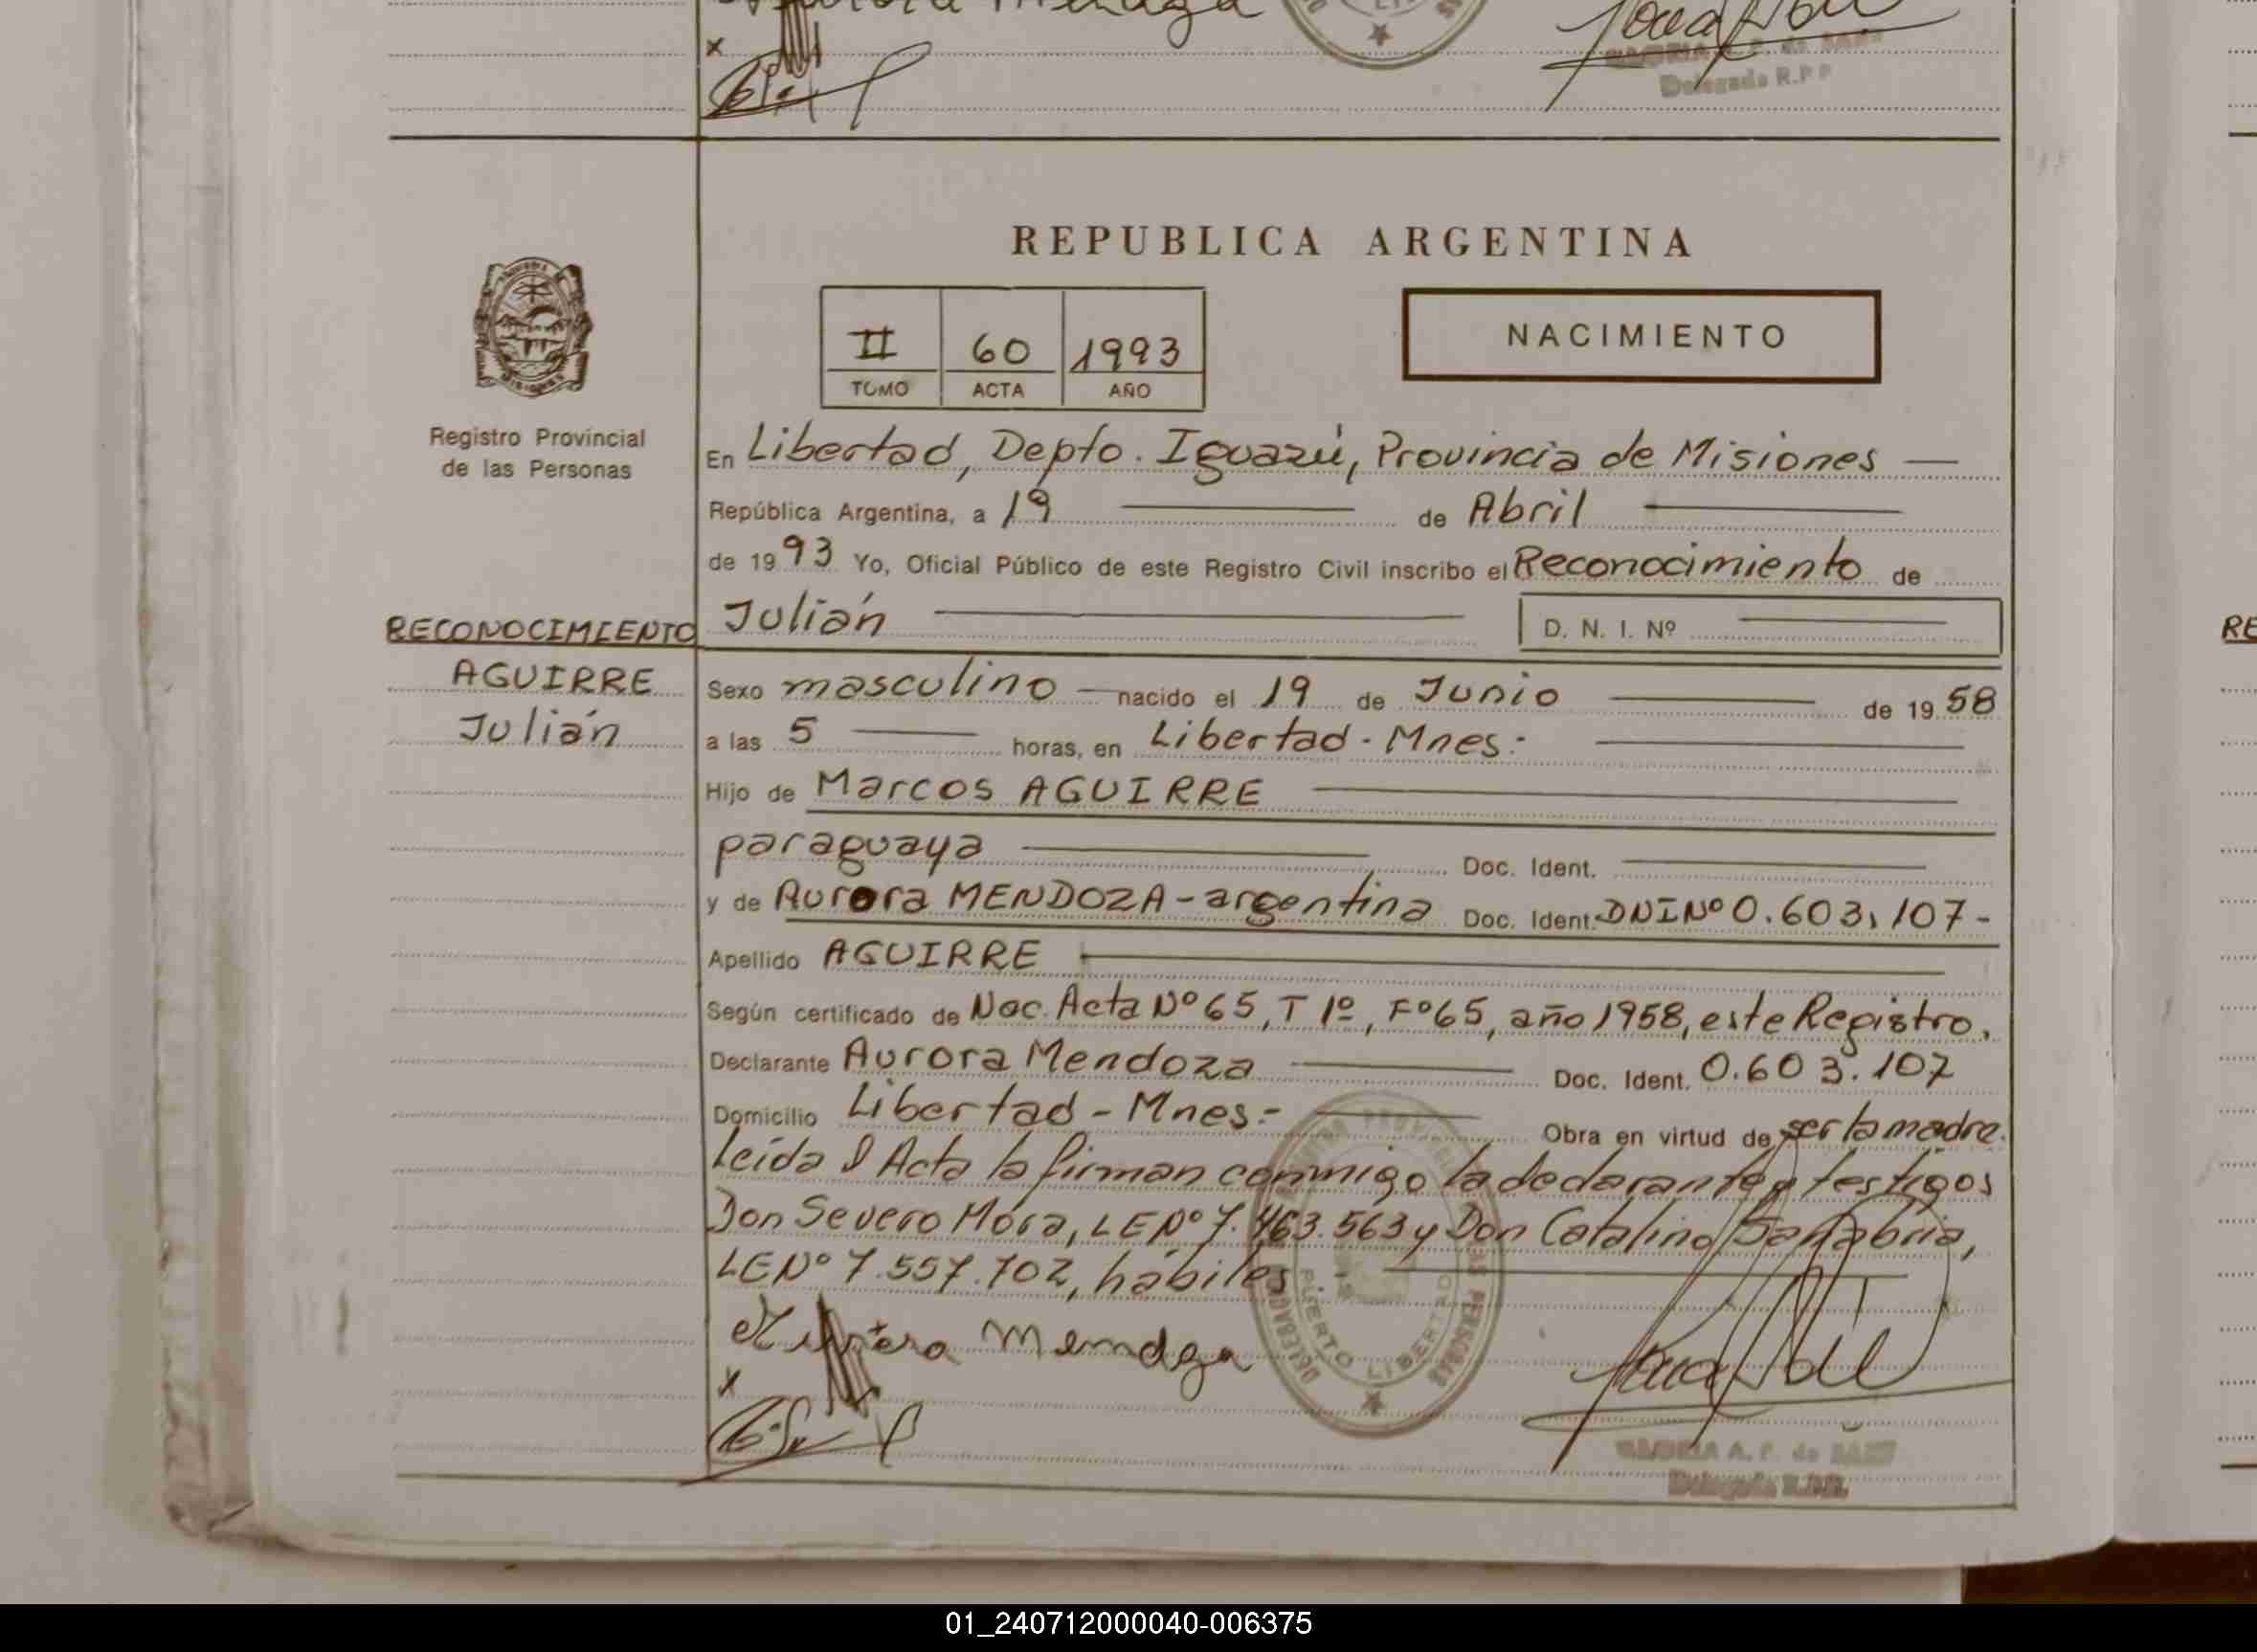 Delegada R.P.P.
REPUBLICA ARGENTINA
II 60 1993
TOMO ACTA AÑO
NACIMIENTO
Registro Provincial
de las Personas
En Libertad, Depto. Iguazú, Provincia de Misiones —
República Argentina, a 19 — de Abril —
de 1993 Yo, Oficial Público de este Registro Civil inscribo el Reconocimiento de
Julián — D. N. I. Nº —
RECONOCIMIENTO
AGUIRRE
Julián
Sexo masculino — nacido el 19 de Junio — de 1958
a las 5 — horas, en Libertad - Mnes.- —
Hijo de Marcos AGUIRRE —
paraguaya — Doc. Ident. —
y de Aurora MENDOZA - argentina Doc. Ident. DNI Nº 0.603.107-
Apellido AGUIRRE —
Según certificado de Nac. Acta Nº 65, T 1º, Fº 65, año 1958, este Registro.
Declarante Aurora Mendoza — Doc. Ident. 0.603.107
Domicilio Libertad - Mnes.- — Obra en virtud de ser la madre.
Leída el Acta la firman conmigo la declarante y testigos
Don Severo Mora, LE Nº 7.463.563 y Don Catalino Sanabria,
LE Nº 7.557.702, hábiles.-
PUERTO LIBERTAD
Mendoza
A. P. de
Delegada R.P.P.
RE
01_240712000040-006375